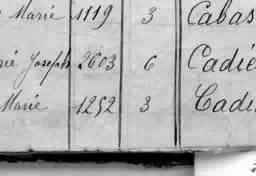 Marie 1119 3 Cabas
rie Joseph 2603 6 Cadie
Marie 1252 3 Cadi